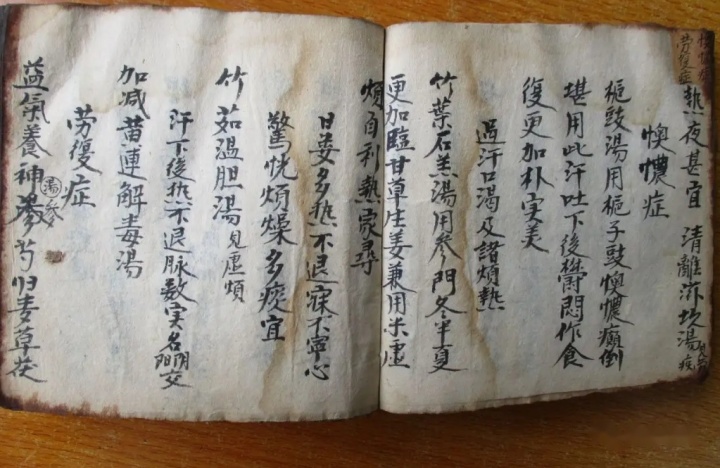 熱夜甚宜 清離滋坎湯
懊憹症
梔豉湯用梔子豉懊憹癲倒
堪用此汗吐下後欝悶作食
復更加朴实美
過汗口渴及諸煩熱
竹葉石羔湯用參門冬半夏
更加臨甘草生姜兼用米虛
煩自利熱家尋
日晏多热不退寐不寧心
驚恍煩燥多痰宜
竹茹温胆湯見虛煩
汗下後热不退脉数实名阴交
加减黄連解毒湯
劳復症
益氣養神湯參芍归麦草茯